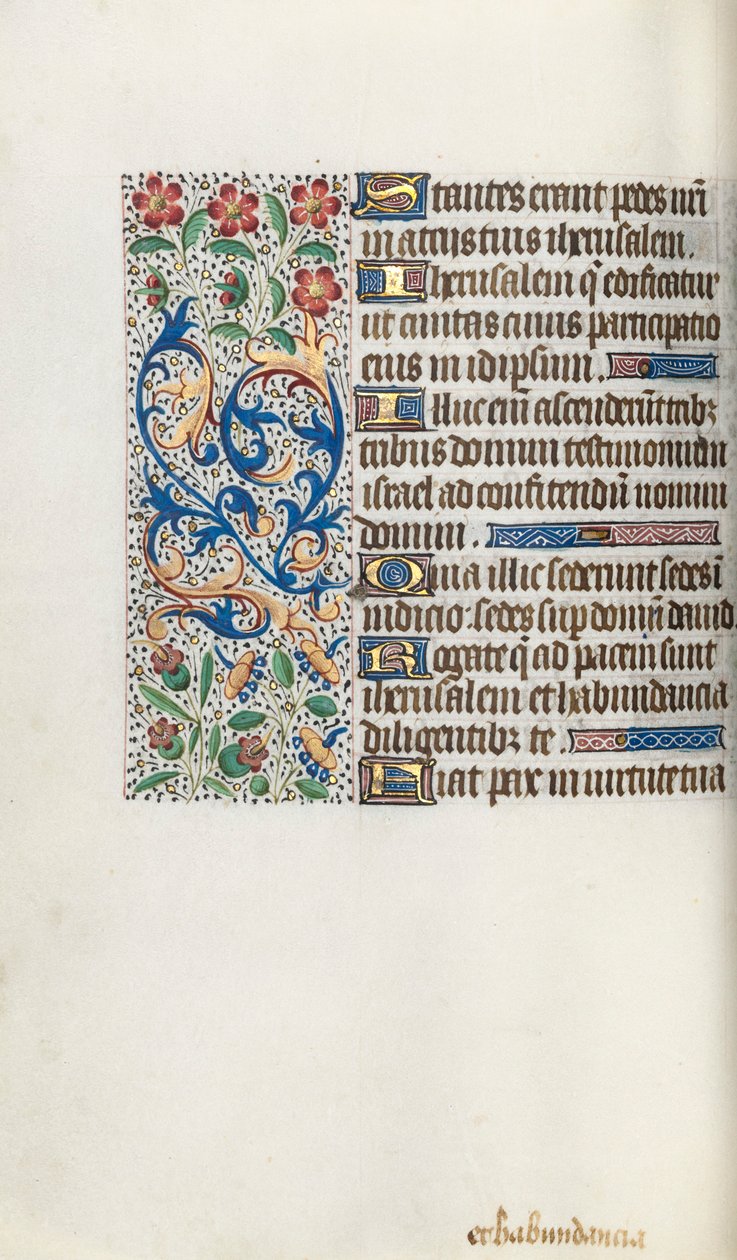 Stantes erant pedes nr̄i
in atriis tuis iherusalem.
Iherusalem q̄ edificatur
ut ciuitas cuius participatio
eius in idipsum.
Illuc em̄ ascenderūt tribꝫ
tribus domini testimonium
israel ad confitendū nomini
domini.
Quia illic sederunt sedes ī
iudicio· sedes sup domū dauid.
Rogate q̄ ad pacem sunt
iherusalem et habundancia
diligentibꝫ te.
Fiat pax in uirtute tua
et habundancia